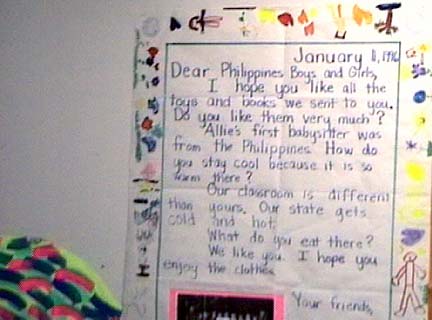 January 11, 1996
Dear Philippines Boys and Girls,
I hope you like all the
toys and books we sent to you.
Do you like them very much?
Allie's first babysitter was
from the Philippines. How do
you stay cool because it is so
warm there?
Our classroom is different
than yours. Our state gets
cold and hot.
What do you eat there?
We like you. I hope you
enjoy the clothes.
Your friends,